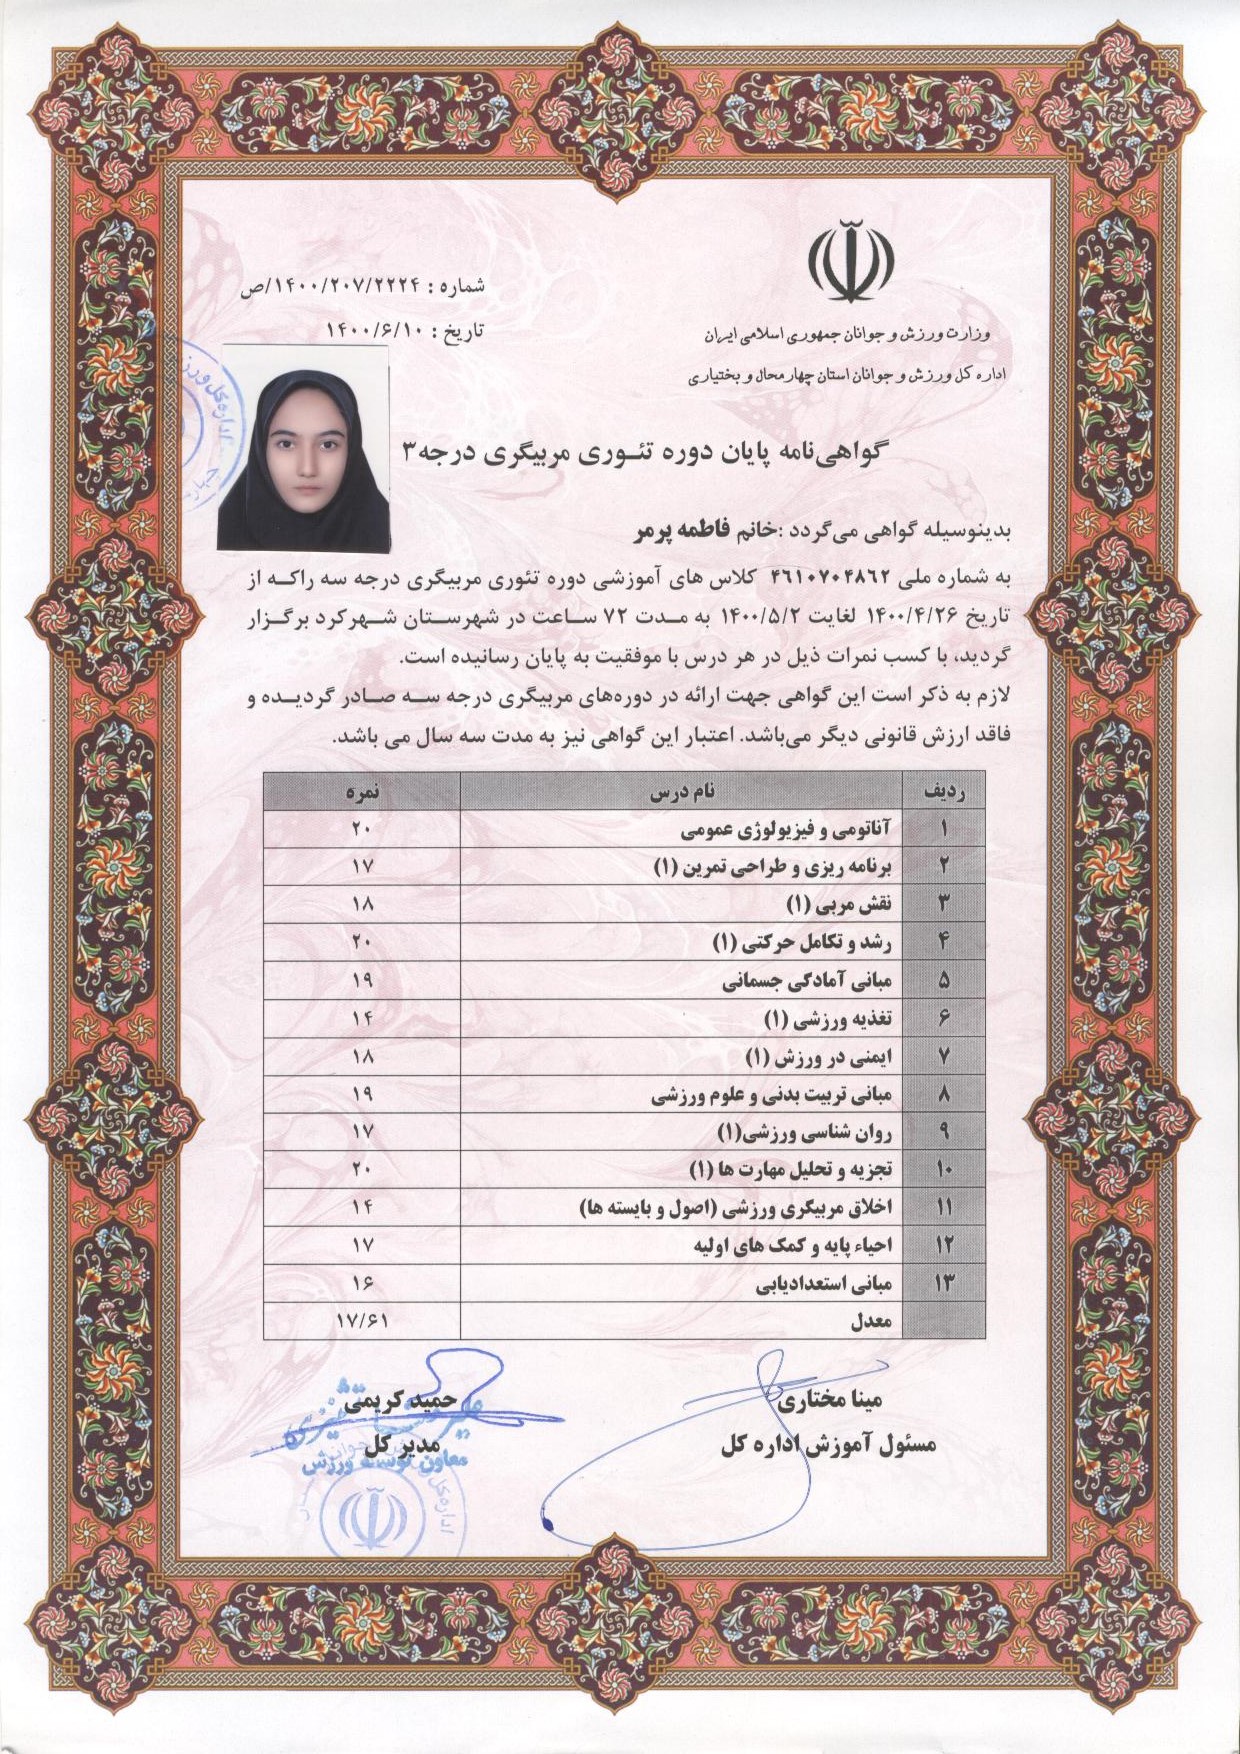 شماره : ۱۴۰۰/۲۰۷/۲۲۲۴/ص
تاریخ : ۱۴۰۰/۶/۱۰
وزارت ورزش و جوانان جمهوری اسلامی ایران
اداره کل ورزش و جوانان استان چهارمحال و بختیاری
اداره کل ورز
گواهی‌نامه پایان دوره تئـوری مربیگری درجه۳
بدینوسیله گواهی می‌گردد :خانم فاطمه پرمر
به شماره ملی ۴۶۱۰۷۰۴۸۶۲ کلاس های آموزشی دوره تئوری مربیگری درجه سه راکـه از
تاریخ ۱۴۰۰/۴/۲۶ لغایت ۱۴۰۰/۵/۲ به مـدت ۷۲ سـاعت در شهرسـتان شهـرکرد برگـزار
گردید، با کسب نمرات ذیل در هر درس با موفقیت به پایان رسانیده است.
لازم به ذکر است این گواهی جهت ارائه در دوره‌های مربیگری درجه سـه صـادر گردیـده و
فاقد ارزش قانونی دیگر می‌باشد. اعتبار این گواهی نیز به مدت سه سال می باشد.
ردیف نام درس نمره
۱ آناتومی و فیزیولوژی عمومی ۲۰
۲ برنامه ریزی و طراحی تمرین (۱) ۱۷
۳ نقش مربی (۱) ۱۸
۴ رشد و تکامل حرکتی (۱) ۲۰
۵ مبانی آمادگی جسمانی ۱۹
۶ تغذیه ورزشی (۱) ۱۴
۷ ایمنی در ورزش (۱) ۱۸
۸ مبانی تربیت بدنی و علوم ورزشی ۱۹
۹ روان شناسی ورزشی(۱) ۱۷
۱۰ تجزیه و تحلیل مهارت ها (۱) ۲۰
۱۱ اخلاق مربیگری ورزشی (اصول و بایسته ها) ۱۴
۱۲ احیاء پایه و کمک های اولیه ۱۷
۱۳ مبانی استعدادیابی ۱۶
معدل ۱۷/۶۱
مینا مختاری
مسئول آموزش اداره کل
حمید کریمی
مدیر کل
معاون توسعه ورزش
اداره کل